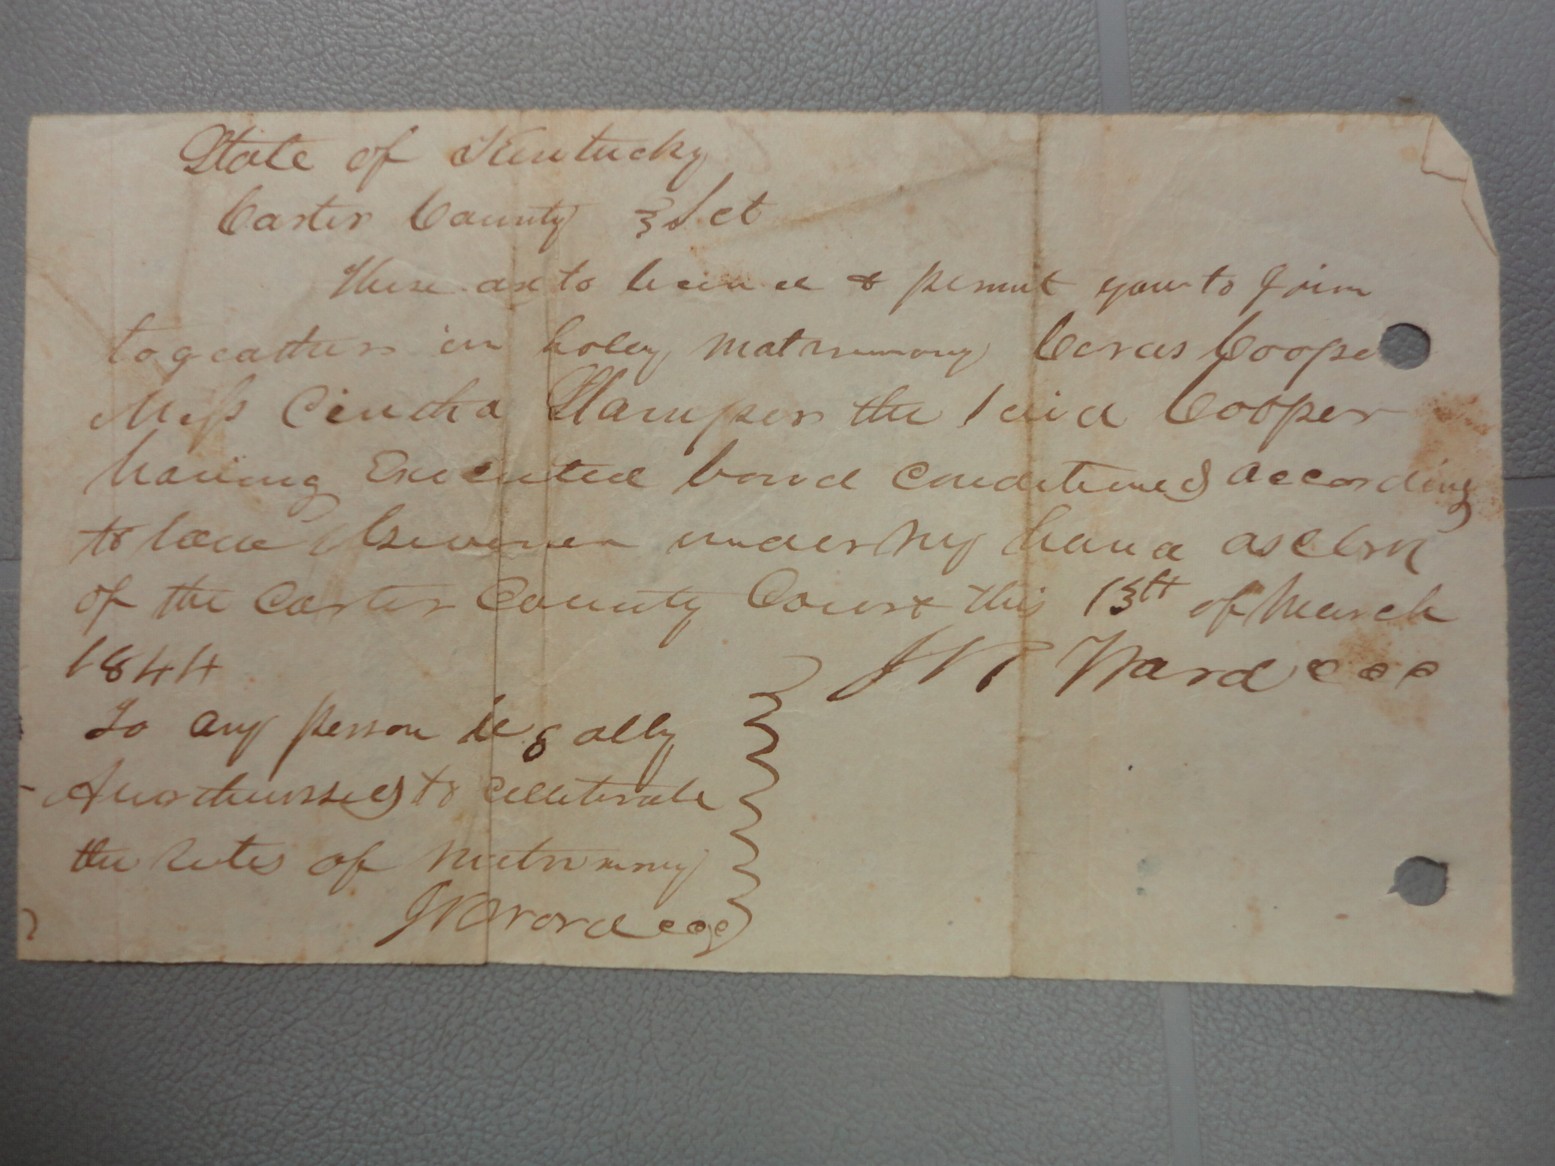 State of Kentucky
Carter County } Sct
These are to licince & permit you to Join
togeather in holey matrimony Cooper
Miss Stamper the said Cooper
having Executed bond conditioned according
to law Given under my hand as Clerk
of the Carter County Court this 13th of March
1844
Ward ccc
To any person legally
Authorised to celebrate
the rites of matrimony
Ward ccc